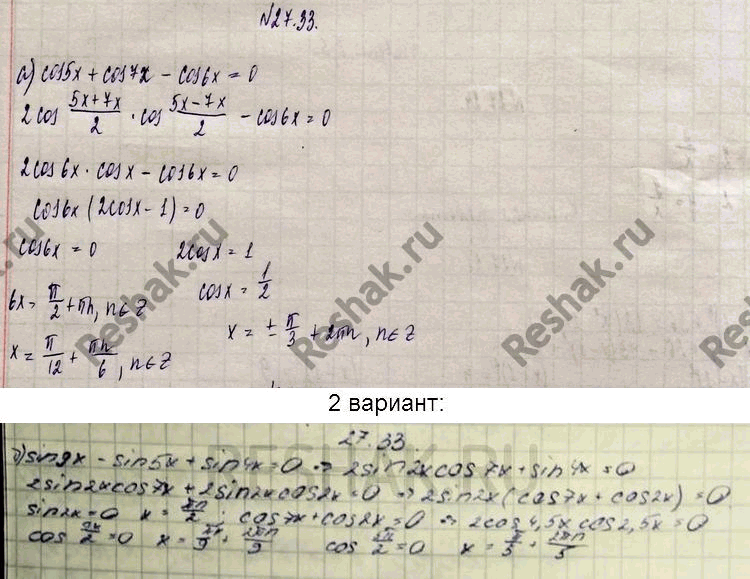 №27.33.
а) cos5x + cos7x - cos6x = 0
2cos (5x+7x)/2 · cos (5x-7x)/2 - cos6x = 0
2cos6x · cosx - cos6x = 0
cos6x (2cosx - 1) = 0
cos6x = 0 2cosx = 1
6x = π/2 + πn, n∈Z cosx = 1/2
x = π/12 + πn/6, n∈Z x = ± π/3 + 2πn, n∈Z
Reshak.ru
Reshak.ru
Reshak.ru
2 вариант:
27.33
RESHAK.RU
б) sin9x - sin5x + sin4x = 0 => 2sin2x cos7x + sin4x = 0
2sin2x cos7x + 2sin2x cos2x = 0 => 2sin2x (cos7x + cos2x) = 0
sin2x = 0 x = πn/2; cos7x + cos2x = 0 => 2cos4,5x cos2,5x = 0
cos 9x/2 = 0 x = π/9 + 2πn/9 cos 5x/2 = 0 x = π/5 + 2πn/5